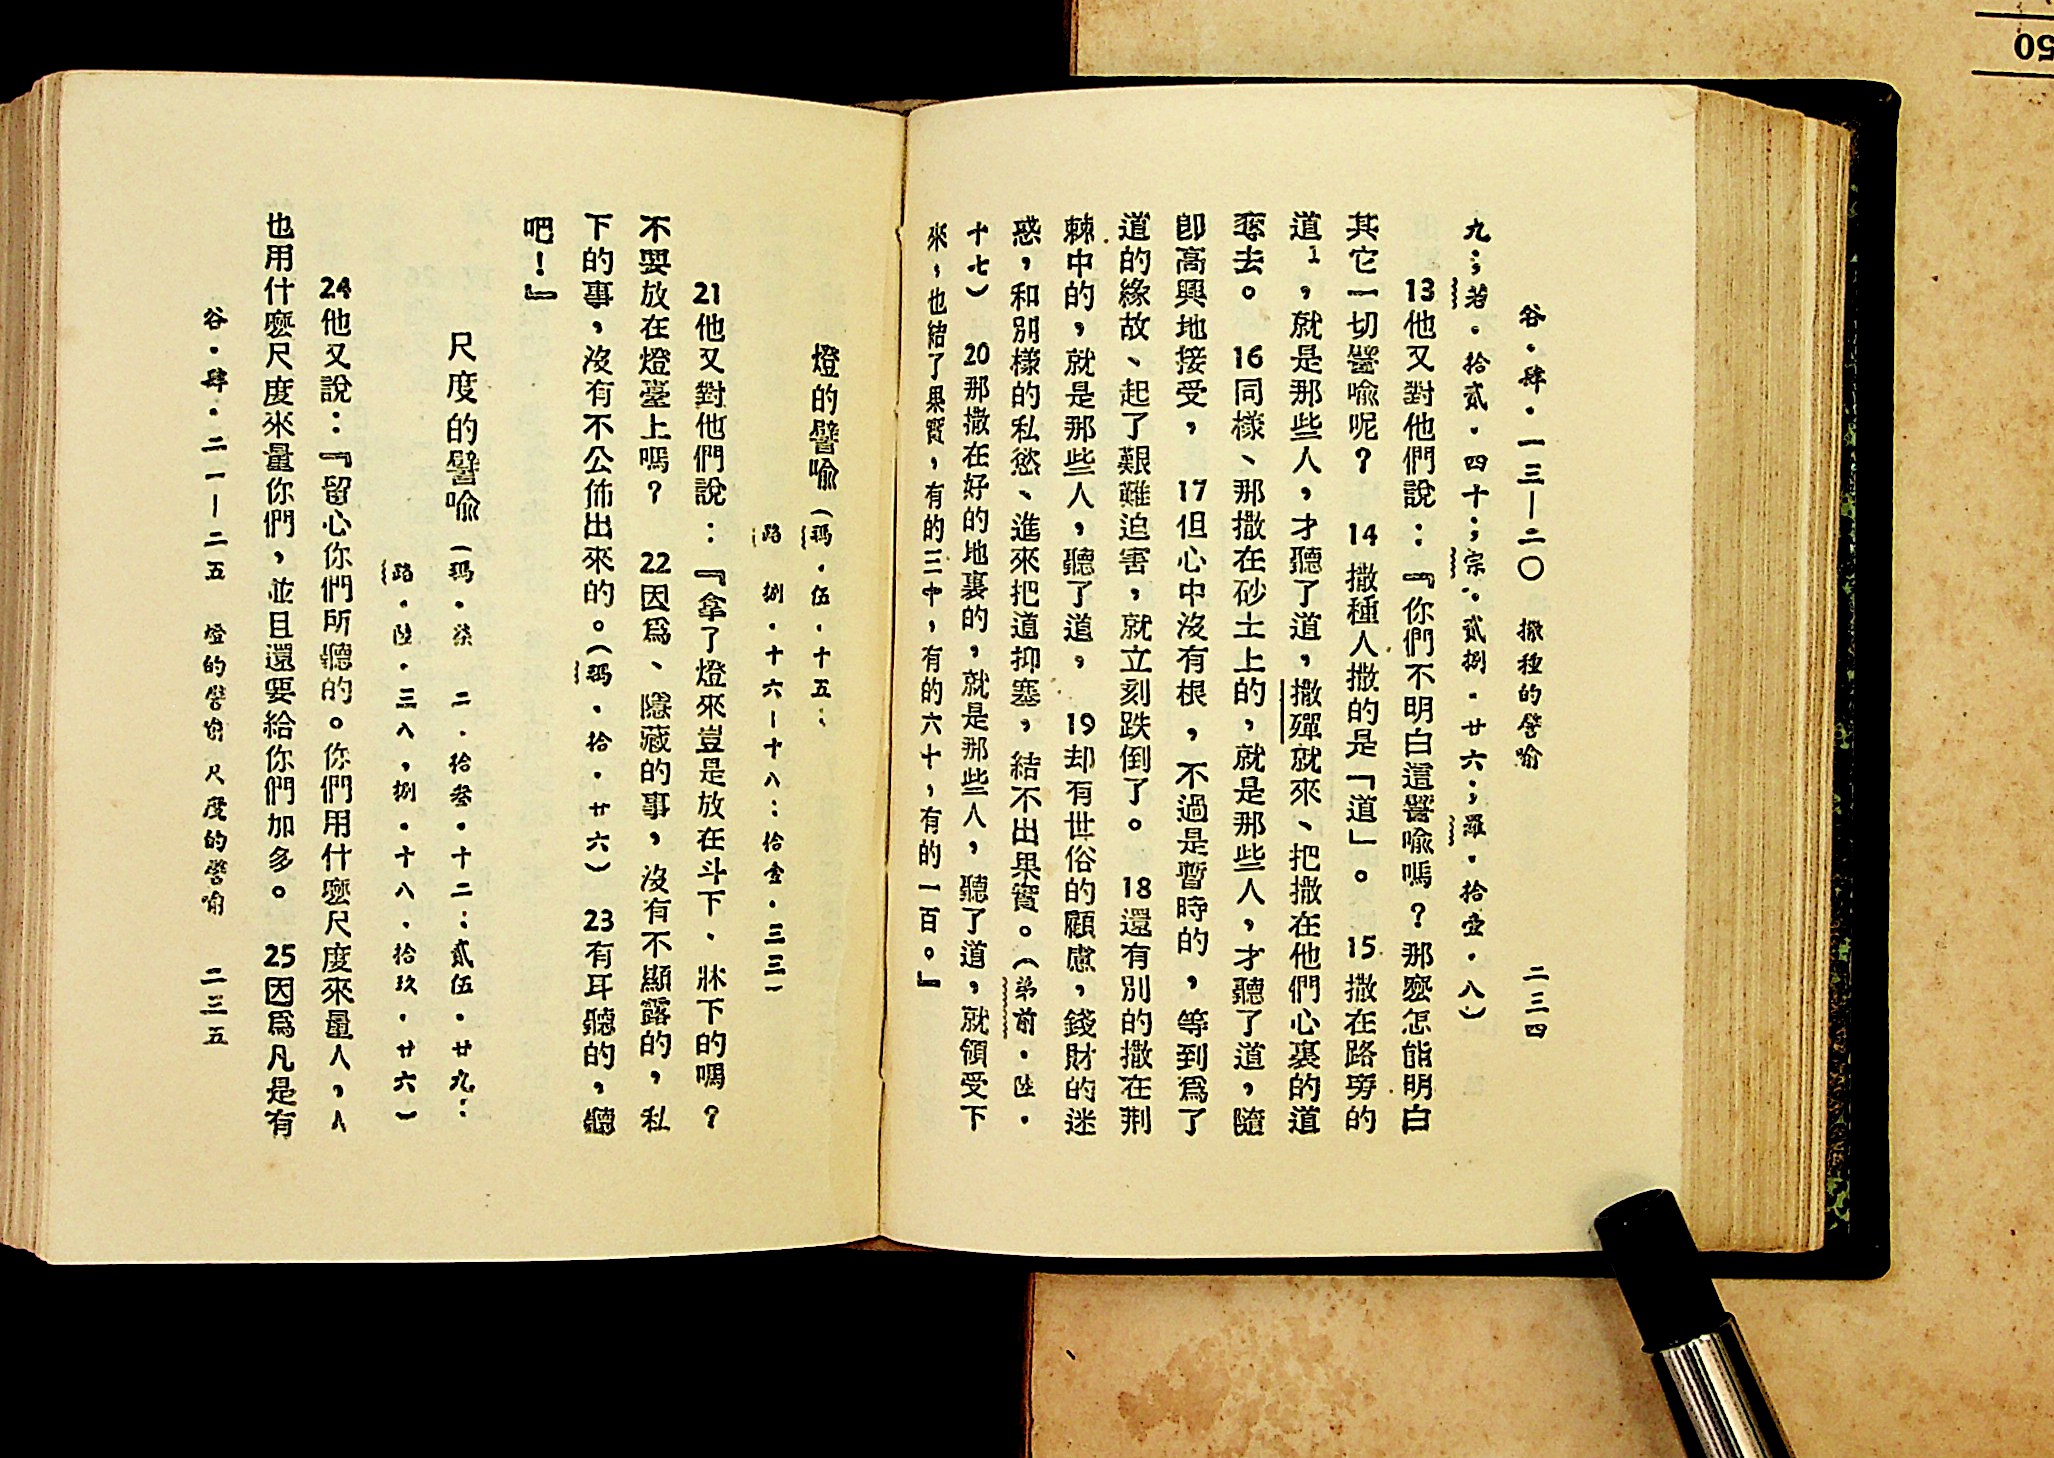 谷·肆·一三—二〇 撒種的譬喻 二三四
九;;若·拾貳·四十;;宗·貳捌·廿六;;羅·拾壹·八)
13他又對他們說:『你們不明白這譬喻嗎?那麼怎能明白
其它一切譬喻呢? 14撒種人撒的是「道」。 15撒在路旁的
道1,就是那些人,才聽了道,撒殫就來、把撒在他們心裏的道
奪去。 16同樣、那撒在砂土上的,就是那些人,才聽了道,隨
卽高興地接受, 17但心中沒有根,不過是暫時的,等到爲了
道的緣故、起了艱難迫害,就立刻跌倒了。 18還有別的撒在荆
棘中的,就是那些人,聽了道, 19却有世俗的顧慮,錢財的迷
惑,和別樣的私慾、進來把道抑塞,結不出果實。(弟前·陸·
十七) 20那撒在好的地裏的,就是那些人,聽了道,就領受下
來,也結了果實,有的三十,有的六十,有的一百。』
燈的譬喻(瑪·伍·十五;
路 捌·十六—十八;拾壹·三三)
21他又對他們說:『拿了燈來豈是放在斗下、牀下的嗎?
不要放在燈臺上嗎? 22因爲、隱藏的事,沒有不顯露的,私
下的事,沒有不公佈出來的。(瑪·拾·廿六) 23有耳聽的,聽
吧!』
尺度的譬喻(瑪·柒 二·拾叁·十二;貳伍·廿九;
路·陸·三八,捌·十八·拾玖·廿六)
24他又說:『留心你們所聽的。你們用什麼尺度來量人,人
也用什麼尺度來量你們,並且還要給你們加多。 25因爲凡是有
谷·肆·二一—二五 燈的譬喻 尺度的譬喻 二三五
50